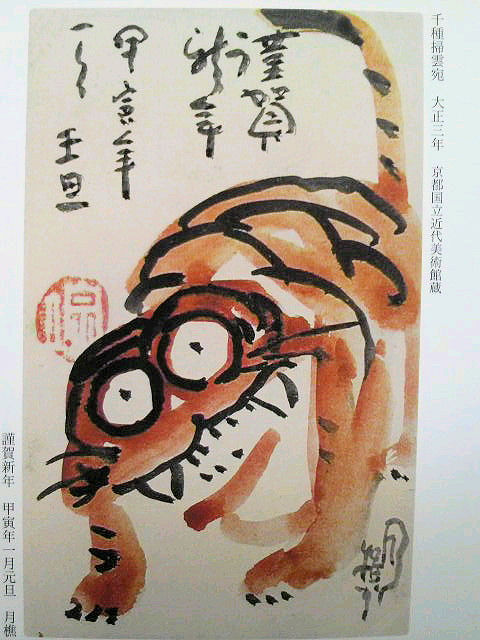 千種掃雲宛　大正三年　京都国立近代美術館蔵
謹賀
新年
甲寅年
一月
元旦
月樵
謹賀新年　甲寅年一月元旦　月樵